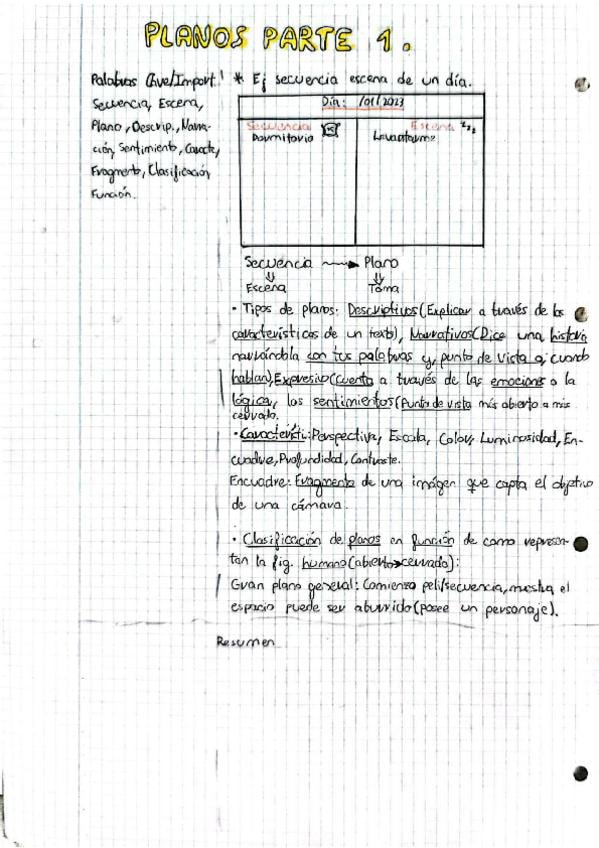 PLANOS PARTE 1.
Palabras Clave/Import.:
Secuencia, Escena,
Plano, Descrip., Narra-
ción, Sentimiento, Caracte,
Fragmento, Clasificación
Función.
* Ej secuencia escena de un día.
Día: /01/2023
Secuencia
Dormitorio
Escena zzz
Levantarme
Secuencia → Plano
⇓ ⇓
Escena Toma
• Tipos de planos: Descriptivos (Explicar a través de las
características de un texto), Narrativos (Dice una historia
narrándola con tus palabras y, punto de vista q, cuando
hablan), Expresivo (cuenta a través de las emociones o la
lógica, los sentimientos (Punto de vista más abierto a más
cerrado.
• Característi: Perspectiva, Escala, Color, Luminosidad, En-
cuadre, Profundidad, Contraste.
Encuadre: Fragmento de una imágen que capta el objetivo
de una cámara.
• Clasificación de planos en función de como represen-
tan la fig. humana (abierto→cerrado):
Gran plano general: Comienzo peli/secuencia, mostra el
espacio puede ser aburrido (posee un personaje).
Resumen